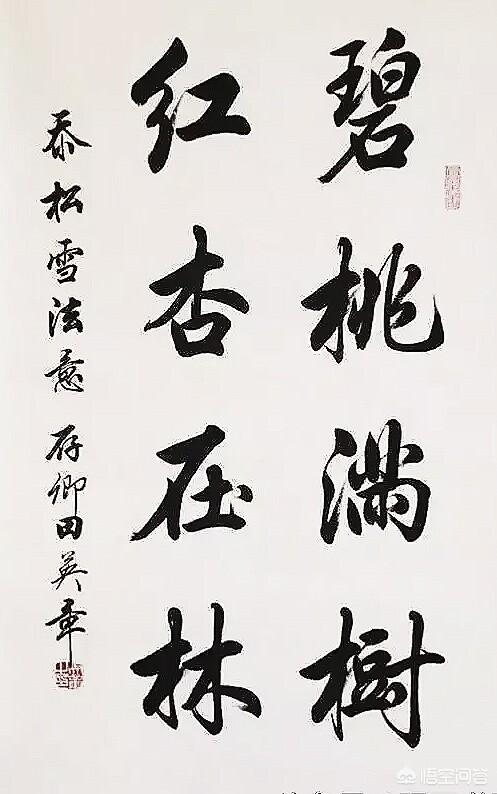 碧桃滿樹
紅杏在林
松雪法意 存卿田英章
悟空问答